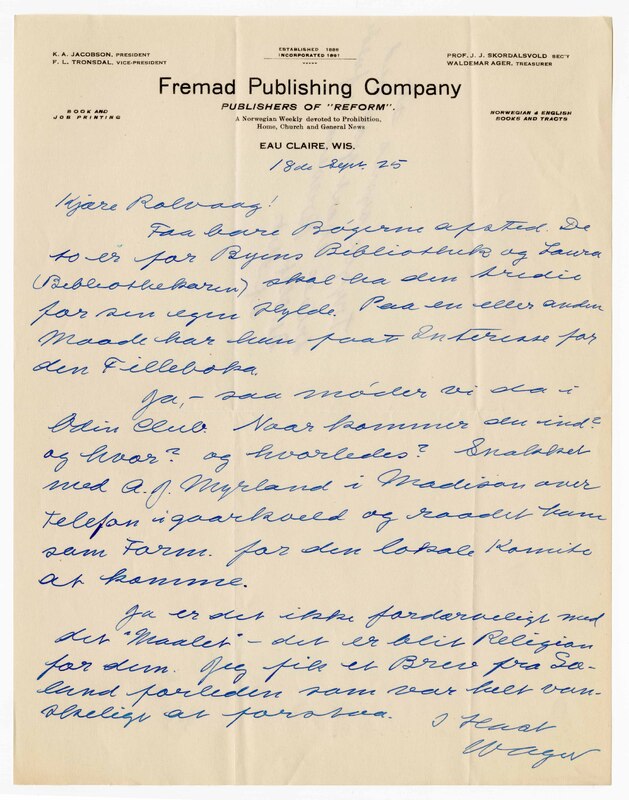 K. A. JACOBSON, PRESIDENT
F. L. TRONSDAL, VICE-PRESIDENT
ESTABLISHED 1886
INCORPORATED 1891
PROF. J. J. SKORDALSVOLD SEC'Y
WALDEMAR AGER, TREASURER
Fremad Publishing Company
PUBLISHERS OF "REFORM".
BOOK AND
JOB PRINTING
A Norwegian Weekly devoted to Prohibition,
Home, Church and General News
NORWEGIAN & ENGLISH
BOOKS AND TRACTS
EAU CLAIRE, WIS.
18de Sept. 25
Kjære Rolvaag!
Faa bare Bøgerne afsted. De
to er for Byens Bibliothek og Laura
(Bibliothekaren) skal ha den tredie
for sen egen Hylde. Paa en eller anden
Maade har hun faat Interesse for
den Filleboka.
Ja, – saa møder vi da i
Odin Club. Naar kommer du ind?
og hvor? og hvorledes? Snakket
med A. J. Myrland i Madison over
Telefon igaarkveld og raadet ham
som Form. for den lokale Komite
at komme.
Ja er det ikke fordærveligt med
det "Maalet" – det er blit Religion
for dem. Jeg fik et Brev fra So-
land forleden som var helt van-
skeligt at forstaa.
I Hast
W Ager